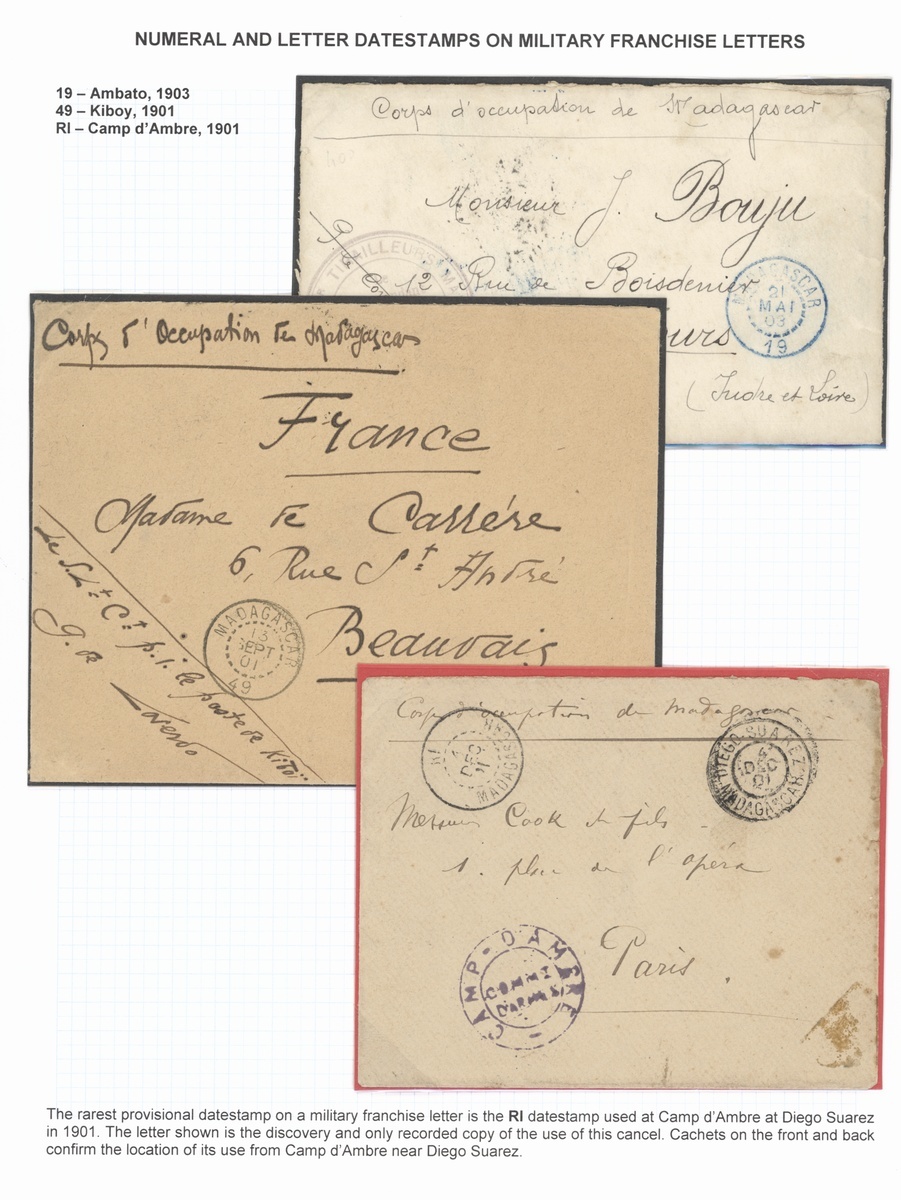 NUMERAL AND LETTER DATESTAMPS ON MILITARY FRANCHISE LETTERS
19 – Ambato, 1903
49 – Kiboy, 1901
RI – Camp d'Ambre, 1901
Corps d'occupation de Madagascar
Monsieur J. Bouju
TIRAILLEURS
12 Rue de Boisdenier
MADAGASCAR
21
MAI
03
19
ours
(Indre et Loire)
Corps d'Occupation de Madagascar
France
Madame de Carrére
6, Rue St André
Beauvais
Le S. Lt Ct p.i. le poste de Kiboï
G. de
MADAGASCAR
13
SEPT
01
49
Corps d'occupation de Madagascar
RI
DEC
MADAGASCAR
DIEGO-SUAREZ
4
DEC
01
MADAGASCAR
Messieurs Cook et fils
1. place de l'opéra
Paris
CAMP-D'AMBRE
COMMT
D'ARMES
The rarest provisional datestamp on a military franchise letter is the RI datestamp used at Camp d'Ambre at Diego Suarez
in 1901. The letter shown is the discovery and only recorded copy of the use of this cancel. Cachets on the front and back
confirm the location of its use from Camp d'Ambre near Diego Suarez.